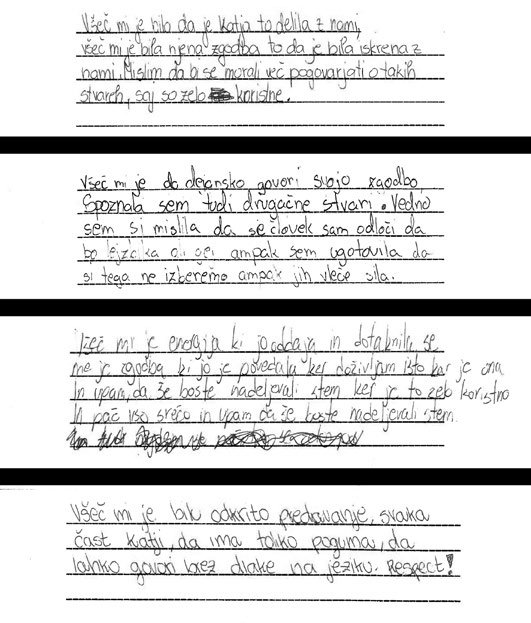 Všeč mi je bilo da je Katja to delila z nami,
všeč mi je bila njena zgodba to da je bila iskrena z
nami. Mislim da bi se morali več pogovarjati o takih
stvareh, saj so zelo koristne.
Všeč mi je da dejansko govori svojo zgodbo.
Spoznala sem tudi drugačne stvari. Vedno
sem si mislila da se človek sam odloči da
bo lezbijka ali gej ampak sem ugotovila da
si tega ne izberemo ampak jih vleče sila.
Všeč mi je energija ki jo oddaja in dotaknila se
me je zgodba ki jo je povedala ker doživljam isto kar je ona
In upam, da še boste nadeljevali stem ker je to zelo koristno
In pač vso srečo in upam da še boste nadeljevali stem.
Všeč mi je bilo odkrito predavanje, svaka
čast Katji, da ima toliko poguma, da
lahko govori brez dlake na jeziku. Respect!